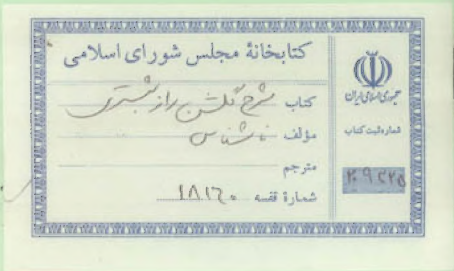 کتابخانهٔ مجلس شورای اسلامی
کتاب شرح گلشن راز شبستری
مؤلف ناشناس
مترجم
شمارهٔ قفسه ۱۸۱۶۰
جمهوری اسلامی ایران
شماره ثبت کتاب
۲۰۹۴۲۵